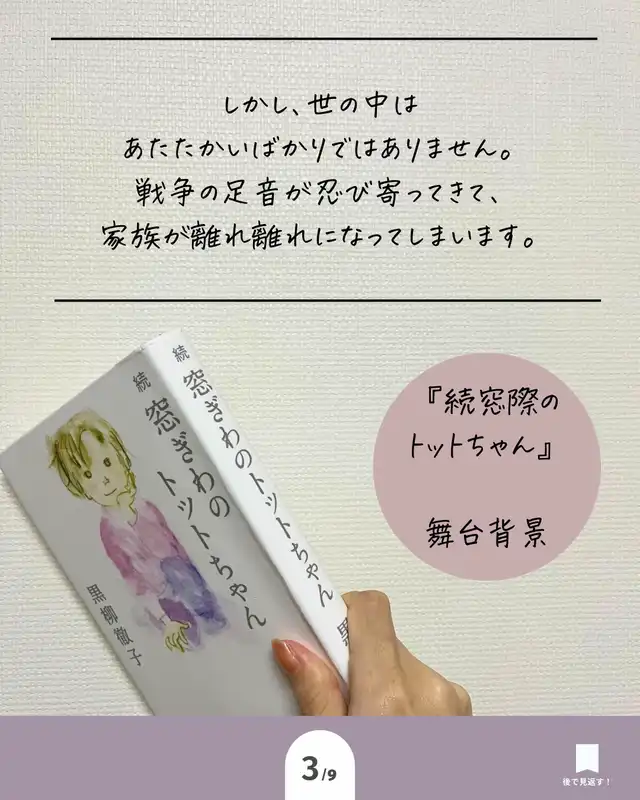 しかし、世の中は
あたたかいばかりではありません。
戦争の足音が忍び寄ってきて、
家族が離れ離れになってしまいます。
『続窓際の
トットちゃん』
舞台背景
続
窓ぎわの
トットちゃん
黒柳徹子
続 窓ぎわのトットちゃん 黒
3/9
後で見返す!